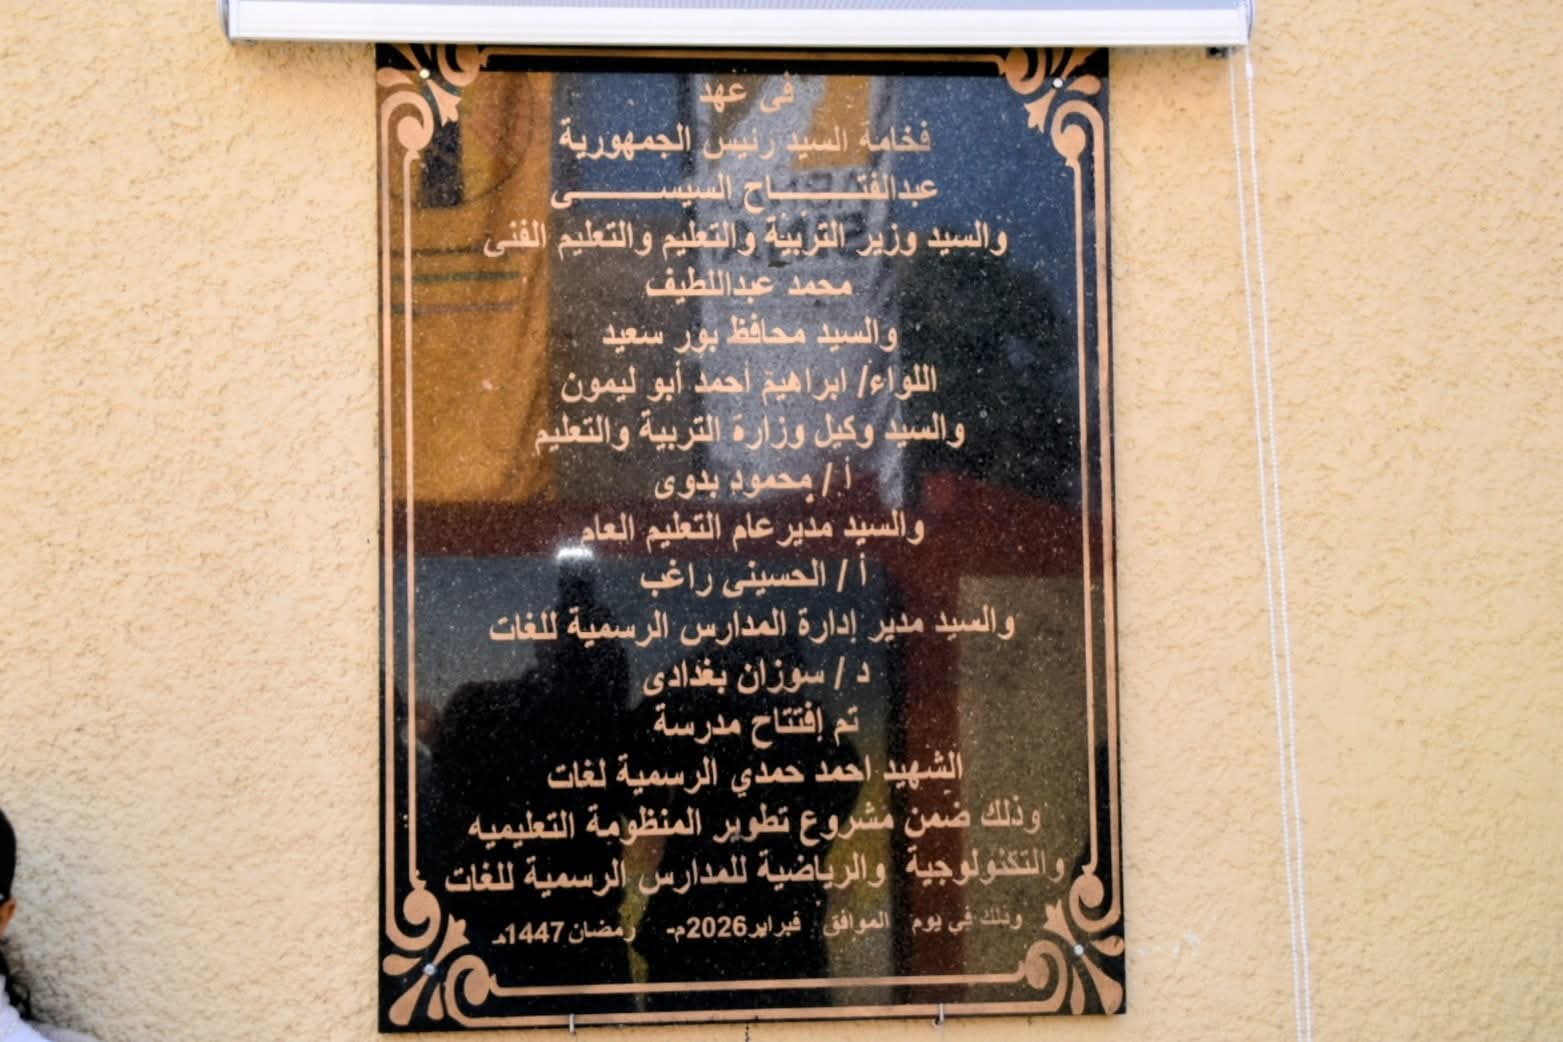 فى عهد
فخامة السيد رئيس الجمهورية
عبدالفتـــــاح السيســـــــى
والسيد وزير التربية والتعليم والتعليم الفنى
محمد عبداللطيف
والسيد محافظ بور سعيد
اللواء/ ابراهيم احمد أبو ليمون
والسيد وكيل وزارة التربية والتعليم
أ / محمود بدوى
والسيد مدير عام التعليم العام
أ / الحسينى راغب
والسيد مدير إدارة المدارس الرسمية للغات
د / سوزان بغدادى
تم إفتتاح مدرسة
الشهيد احمد حمدي الرسمية لغات
وذلك ضمن مشروع تطوير المنظومة التعليميه
والتكنولوجية والرياضية للمدارس الرسمية للغات
وذلك في يوم الموافق فبراير2026م- رمضان 1447هـ